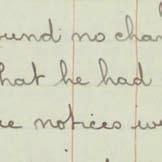 ound no cha
hat he had
e notices we